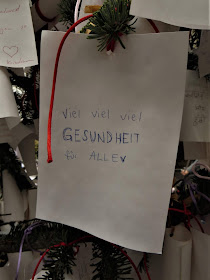 viel viel viel
GESUNDHEIT
für ALLE♥